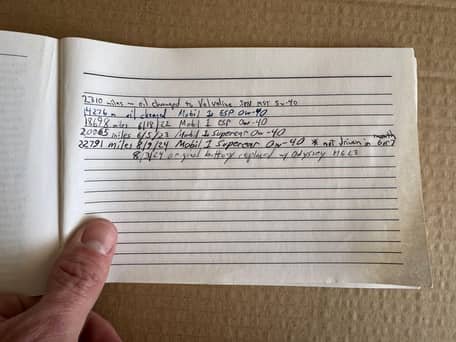 miles — oil changed to Valvoline 5w-40
14226 m oil changed Mobil 1 ESP 0w-40
18698 miles 6/18/22 Mobil 1 ESP 0w-40
20065 miles 6/5/23 Mobil 1 Supercar 0w-40
22791 miles 8/9/24 Mobil 1 Supercar 0w-40 * not driven in 6 or 7 months
original battery replaced w/ Odyssey